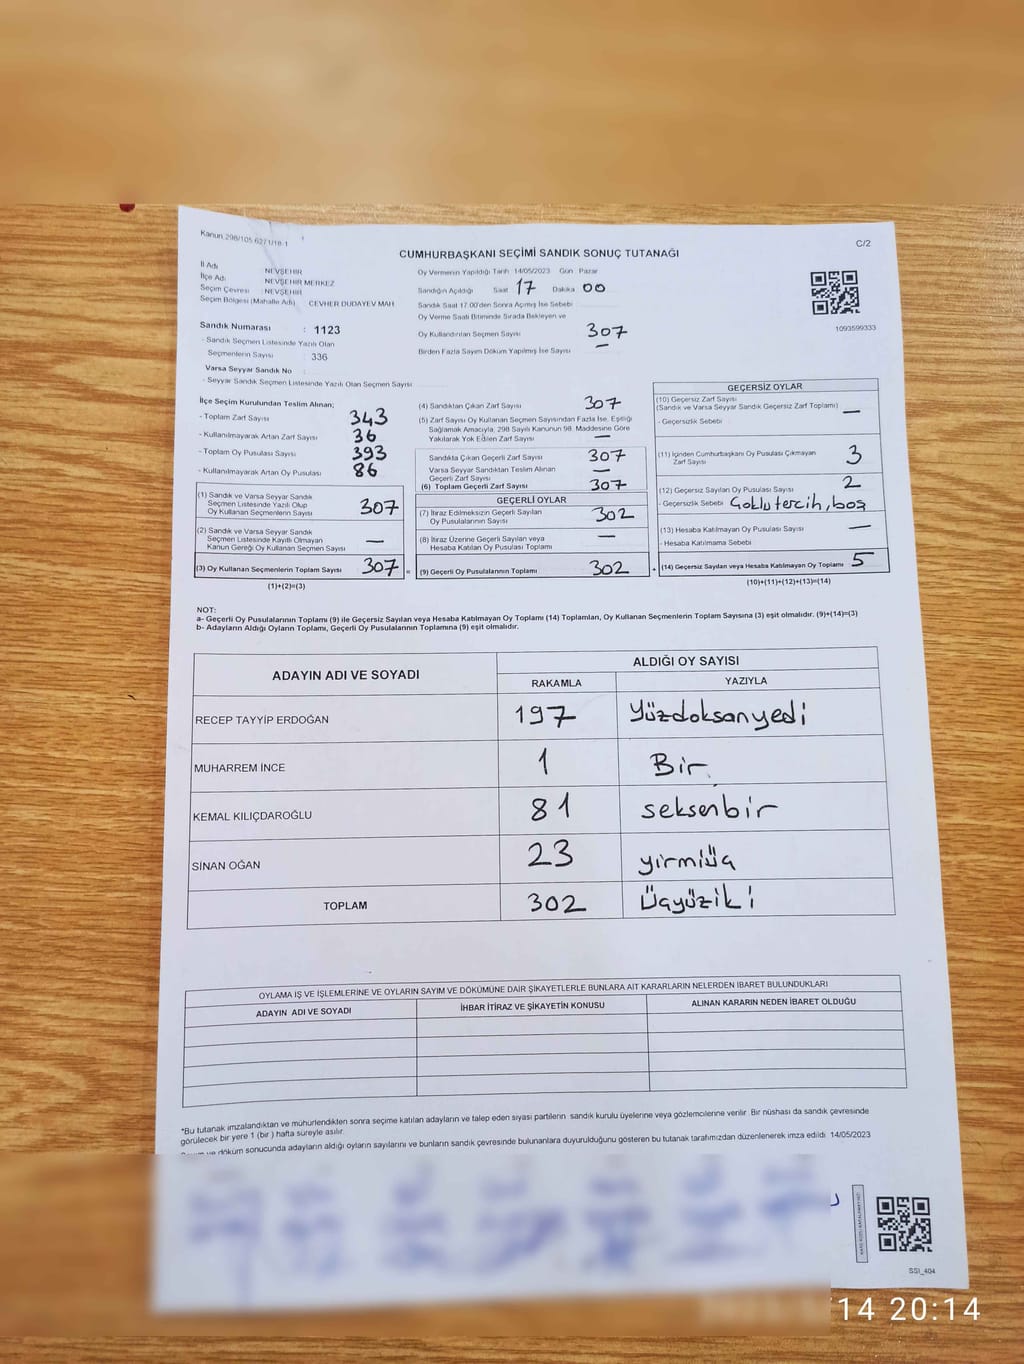 Kanun 298/105 6271/18-1
C/2
CUMHURBAŞKANI SEÇİMİ SANDIK SONUÇ TUTANAĞI
İl Adı NEVŞEHİR
İlçe Adı NEVŞEHİR MERKEZ
Seçim Çevresi : NEVŞEHİR
Seçim Bölgesi (Mahalle Adı) CEVHER DUDAYEV MAH
Sandık Numarası : 1123
- Sandık Seçmen Listesinde Yazılı Olan
Seçmenlerin Sayısı : 336
Varsa Seyyar Sandık No
- Seyyar Sandık Seçmen Listesinde Yazılı Olan Seçmen Sayısı
Oy Vermenin Yapıldığı Tarih 14/05/2023 Gün Pazar
Sandığın Açıldığı Saat 17 Dakika 00
Sandık Saat 17.00'den Sonra Açılmış İse Sebebi
Oy Verme Saati Bitiminde Sırada Bekleyen ve
Oy Kullandırılan Seçmen Sayısı 307
Birden Fazla Sayım Döküm Yapılmış İse Sayısı —
1093599333
İlçe Seçim Kurulundan Teslim Alınan;
- Toplam Zarf Sayısı 343
- Kullanılmayarak Artan Zarf Sayısı 36
- Toplam Oy Pusulası Sayısı 393
- Kullanılmayarak Artan Oy Pusulası 86
(1) Sandık ve Varsa Seyyar Sandık
Seçmen Listesinde Yazılı Olup
Oy Kullanan Seçmenlerin Sayısı 307
(2) Sandık ve Varsa Seyyar Sandık
Seçmen Listesinde Kayıtlı Olmayan
Kanun Gereği Oy Kullanan Seçmen Sayısı —
(3) Oy Kullanan Seçmenlerin Toplam Sayısı 307 =
(1)+(2)=(3)
(4) Sandıktan Çıkan Zarf Sayısı 307
(5) Zarf Sayısı Oy Kullanan Seçmen Sayısından Fazla İse, Eşitliği
Sağlamak Amacıyla, 298 Sayılı Kanunun 98. Maddesine Göre
Yakılarak Yok Edilen Zarf Sayısı —
Sandıkta Çıkan Geçerli Zarf Sayısı 307
Varsa Seyyar Sandıktan Teslim Alınan
Geçerli Zarf Sayısı —
(6) Toplam Geçerli Zarf Sayısı 307
GEÇERLİ OYLAR
(7) İtiraz Edilmeksizin Geçerli Sayılan
Oy Pusulalarının Sayısı 302
(8) İtiraz Üzerine Geçerli Sayılan veya
Hesaba Katılan Oy Pusulası Toplamı —
(9) Geçerli Oy Pusulalarının Toplamı 302 +
GEÇERSİZ OYLAR
(10) Geçersiz Zarf Sayısı
(Sandık ve Varsa Seyyar Sandık Geçersiz Zarf Toplamı) —
- Geçersizlik Sebebi
(11) İçinden Cumhurbaşkanı Oy Pusulası Çıkmayan
Zarf Sayısı 3
(12) Geçersiz Sayılan Oy Pusulası Sayısı 2
- Geçersizlik Sebebi Çoklu tercih, boş
(13) Hesaba Katılmayan Oy Pusulası Sayısı —
- Hesaba Katılmama Sebebi
(14) Geçersiz Sayılan veya Hesaba Katılmayan Oy Toplamı 5
(10)+(11)+(12)+(13)=(14)
NOT:
a- Geçerli Oy Pusulalarının Toplamı (9) ile Geçersiz Sayılan veya Hesaba Katılmayan Oy Toplamı (14) Toplamları, Oy Kullanan Seçmenlerin Toplam Sayısına (3) eşit olmalıdır. (9)+(14)=(3)
b- Adayların Aldığı Oyların Toplamı, Geçerli Oy Pusulalarının Toplamına (9) eşit olmalıdır.
ADAYIN ADI VE SOYADI ALDIĞI OY SAYISI
RAKAMLA YAZIYLA
RECEP TAYYİP ERDOĞAN 197 Yüzdoksanyedi
MUHARREM İNCE 1 Bir
KEMAL KILIÇDAROĞLU 81 seksenbir
SİNAN OĞAN 23 yirmiüç
TOPLAM 302 Üçyüziki
OYLAMA İŞ VE İŞLEMLERİNE VE OYLARIN SAYIM VE DÖKÜMÜNE DAİR ŞİKAYETLERLE BUNLARA AİT KARARLARIN NELERDEN İBARET BULUNDUKLARI
ADAYIN ADI VE SOYADI İHBAR İTİRAZ VE ŞİKAYETİN KONUSU ALINAN KARARIN NEDEN İBARET OLDUĞU
*Bu tutanak imzalandıktan ve mühürlendikten sonra seçime katılan adayların ve talep eden siyasi partilerin sandık kurulu üyelerine veya gözlemcilerine verilir. Bir nüshası da sandık çevresinde
görülecek bir yere 1 (bir) hafta süreyle asılır.
ve döküm sonucunda adayların aldığı oyların sayılarını ve bunların sandık çevresinde bulunanlara duyurulduğunu gösteren bu tutanak tarafımızdan düzenlenerek imza edildi. 14/05/2023
SS1_404
/14 20:14